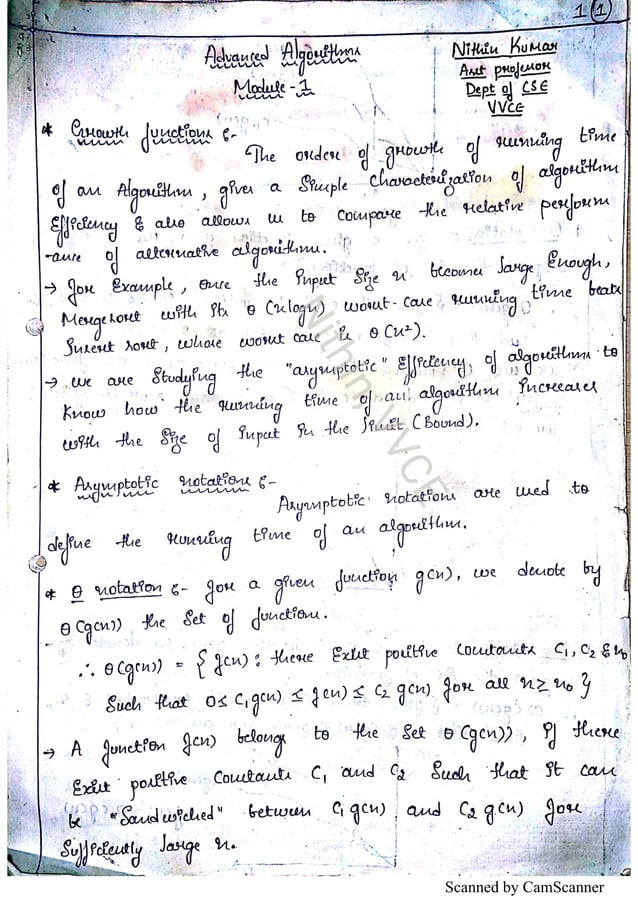 1 1
Advanced Algorithms
Module-1
Nithin Kumar
Asst professor
Dept of CSE
VVCE
* Growth functions :-
The order of growth of running time
of an Algorithm, gives a Simple characterization of algorithm
Efficiency & also allows us to compare the relative perform
-ance of alternative algorithms.
→ for Example, once the Input Size n becomes large Enough,
Mergesort with its θ(nlogn) worst-case running time beats
Insert sort, whose worst case is θ(n²).
→ we are Studying the "asymptotic" Efficiency of algorithms to
Know how the running time of an algorithm Increases
with the Size of Input In the limit (Bound).
* Asymptotic notations :-
Asymptotic notations are used to
define the running time of an algorithm.
* θ notation :- for a given function g(n), we denote by
θ(g(n)) the Set of function.
∴ θ(g(n)) = { f(n): there Exist positive constants C₁, C₂ & n₀
Such that 0≤ C₁g(n) ≤ f(n) ≤ C₂ g(n) for all n≥ n₀ }
→ A function f(n) belongs to the Set θ(g(n)), If there
Exist positive constants C₁ and C₂ Such that It can
be "Sandwiched" between C₁g(n) and C₂g(n) for
Sufficiently large n.
Nithin, VVCE
Scanned by CamScanner